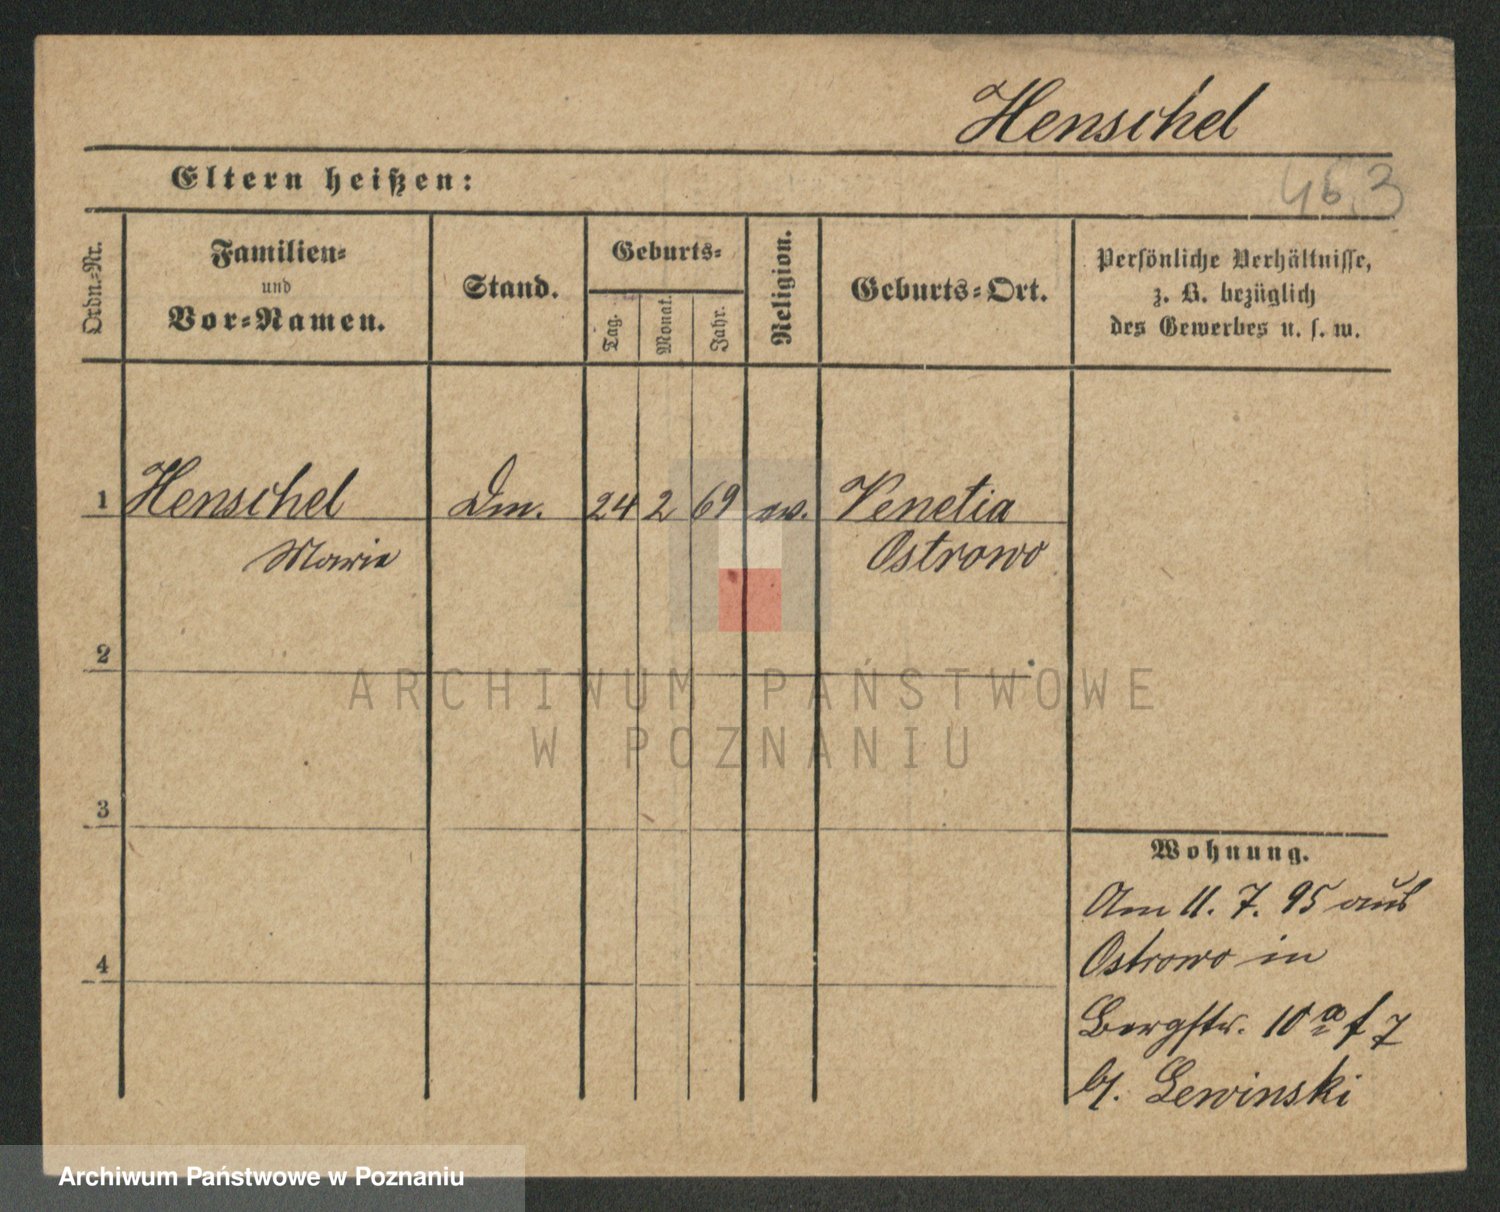 Henschel
Eltern heißen:
463
Ordn.-Nr.
Familien-
und
Vor-Namen.
Stand.
Geburts-
Tag.
Monat.
Jahr.
Religion.
Geburts-Ort.
Persönliche Verhältnisse,
z. B. bezüglich
des Gewerbes u. s. w.
1 Henschel Dm. 24 2 69 ev. Venetia
Marie Ostrowo
2
3
4
Wohnung.
Am 11. 7. 95 aus
Ostrowo in
Bergstr. 10a f 7
b/. Lewinski
ARCHIWUM PAŃSTWOWE
W POZNANIU
Archiwum Państwowe w Poznaniu